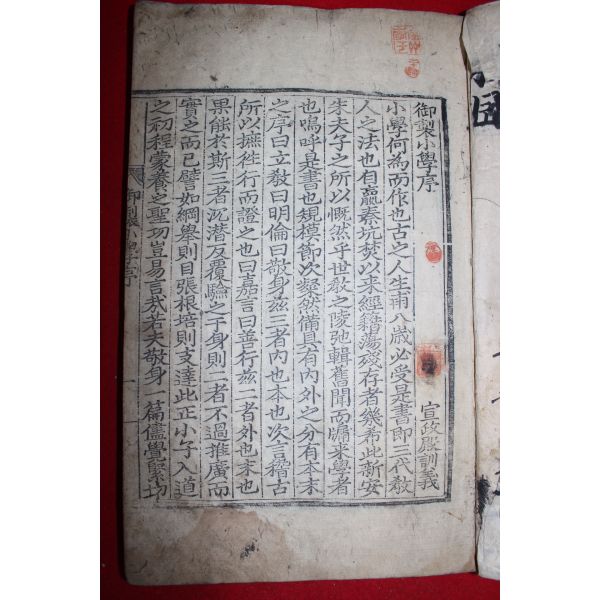 御製小學序　宣政殿訓義
小學何為而作也古之人生甫八歲必受是書即三代教
人之法也自嬴秦坑焚以來經籍蕩殘存者幾希此新安
朱夫子之所以慨然乎世教之陵弛輯舊聞而牖來學者
也嗚呼是書也規模節次粲然備具有內外之分有本末
之序曰立教曰明倫曰敬身玆三者內也本也次言稽古
所以摭往行而證之也曰嘉言曰善行玆二者外也末也
果能於斯三者沉潛反覆驗之于身則二者不過推廣而
實之而已譬如綱舉則目張根培則支達此正小子入道
之初程蒙養之聖功豈易言哉若夫敬身一篇儘覺緊切
御製小學序